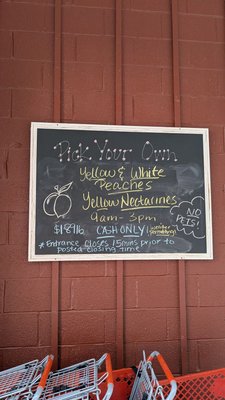 Pick Your Own
Yellow & White
Peaches
Yellow Nectarines
9am - 3pm
NO
PETS!
CASH ONLY
*Entrance closes 15mins prior to
posted closing time